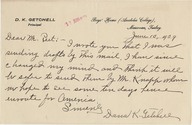 D. K. GETCHELL
Principal
Boys' Home (Anatolia College)
Merzifoun, Turkey
June 15, 1909
Dear Mr. Peet:-
I wrote you that I was
sending drafts by this mail. I have since
changed my mind and think it will
be safer to send them by Mr. Knapp whom
we hope to see some ten days hence
enroute for America.
Sincerely
Dana K. Getchell